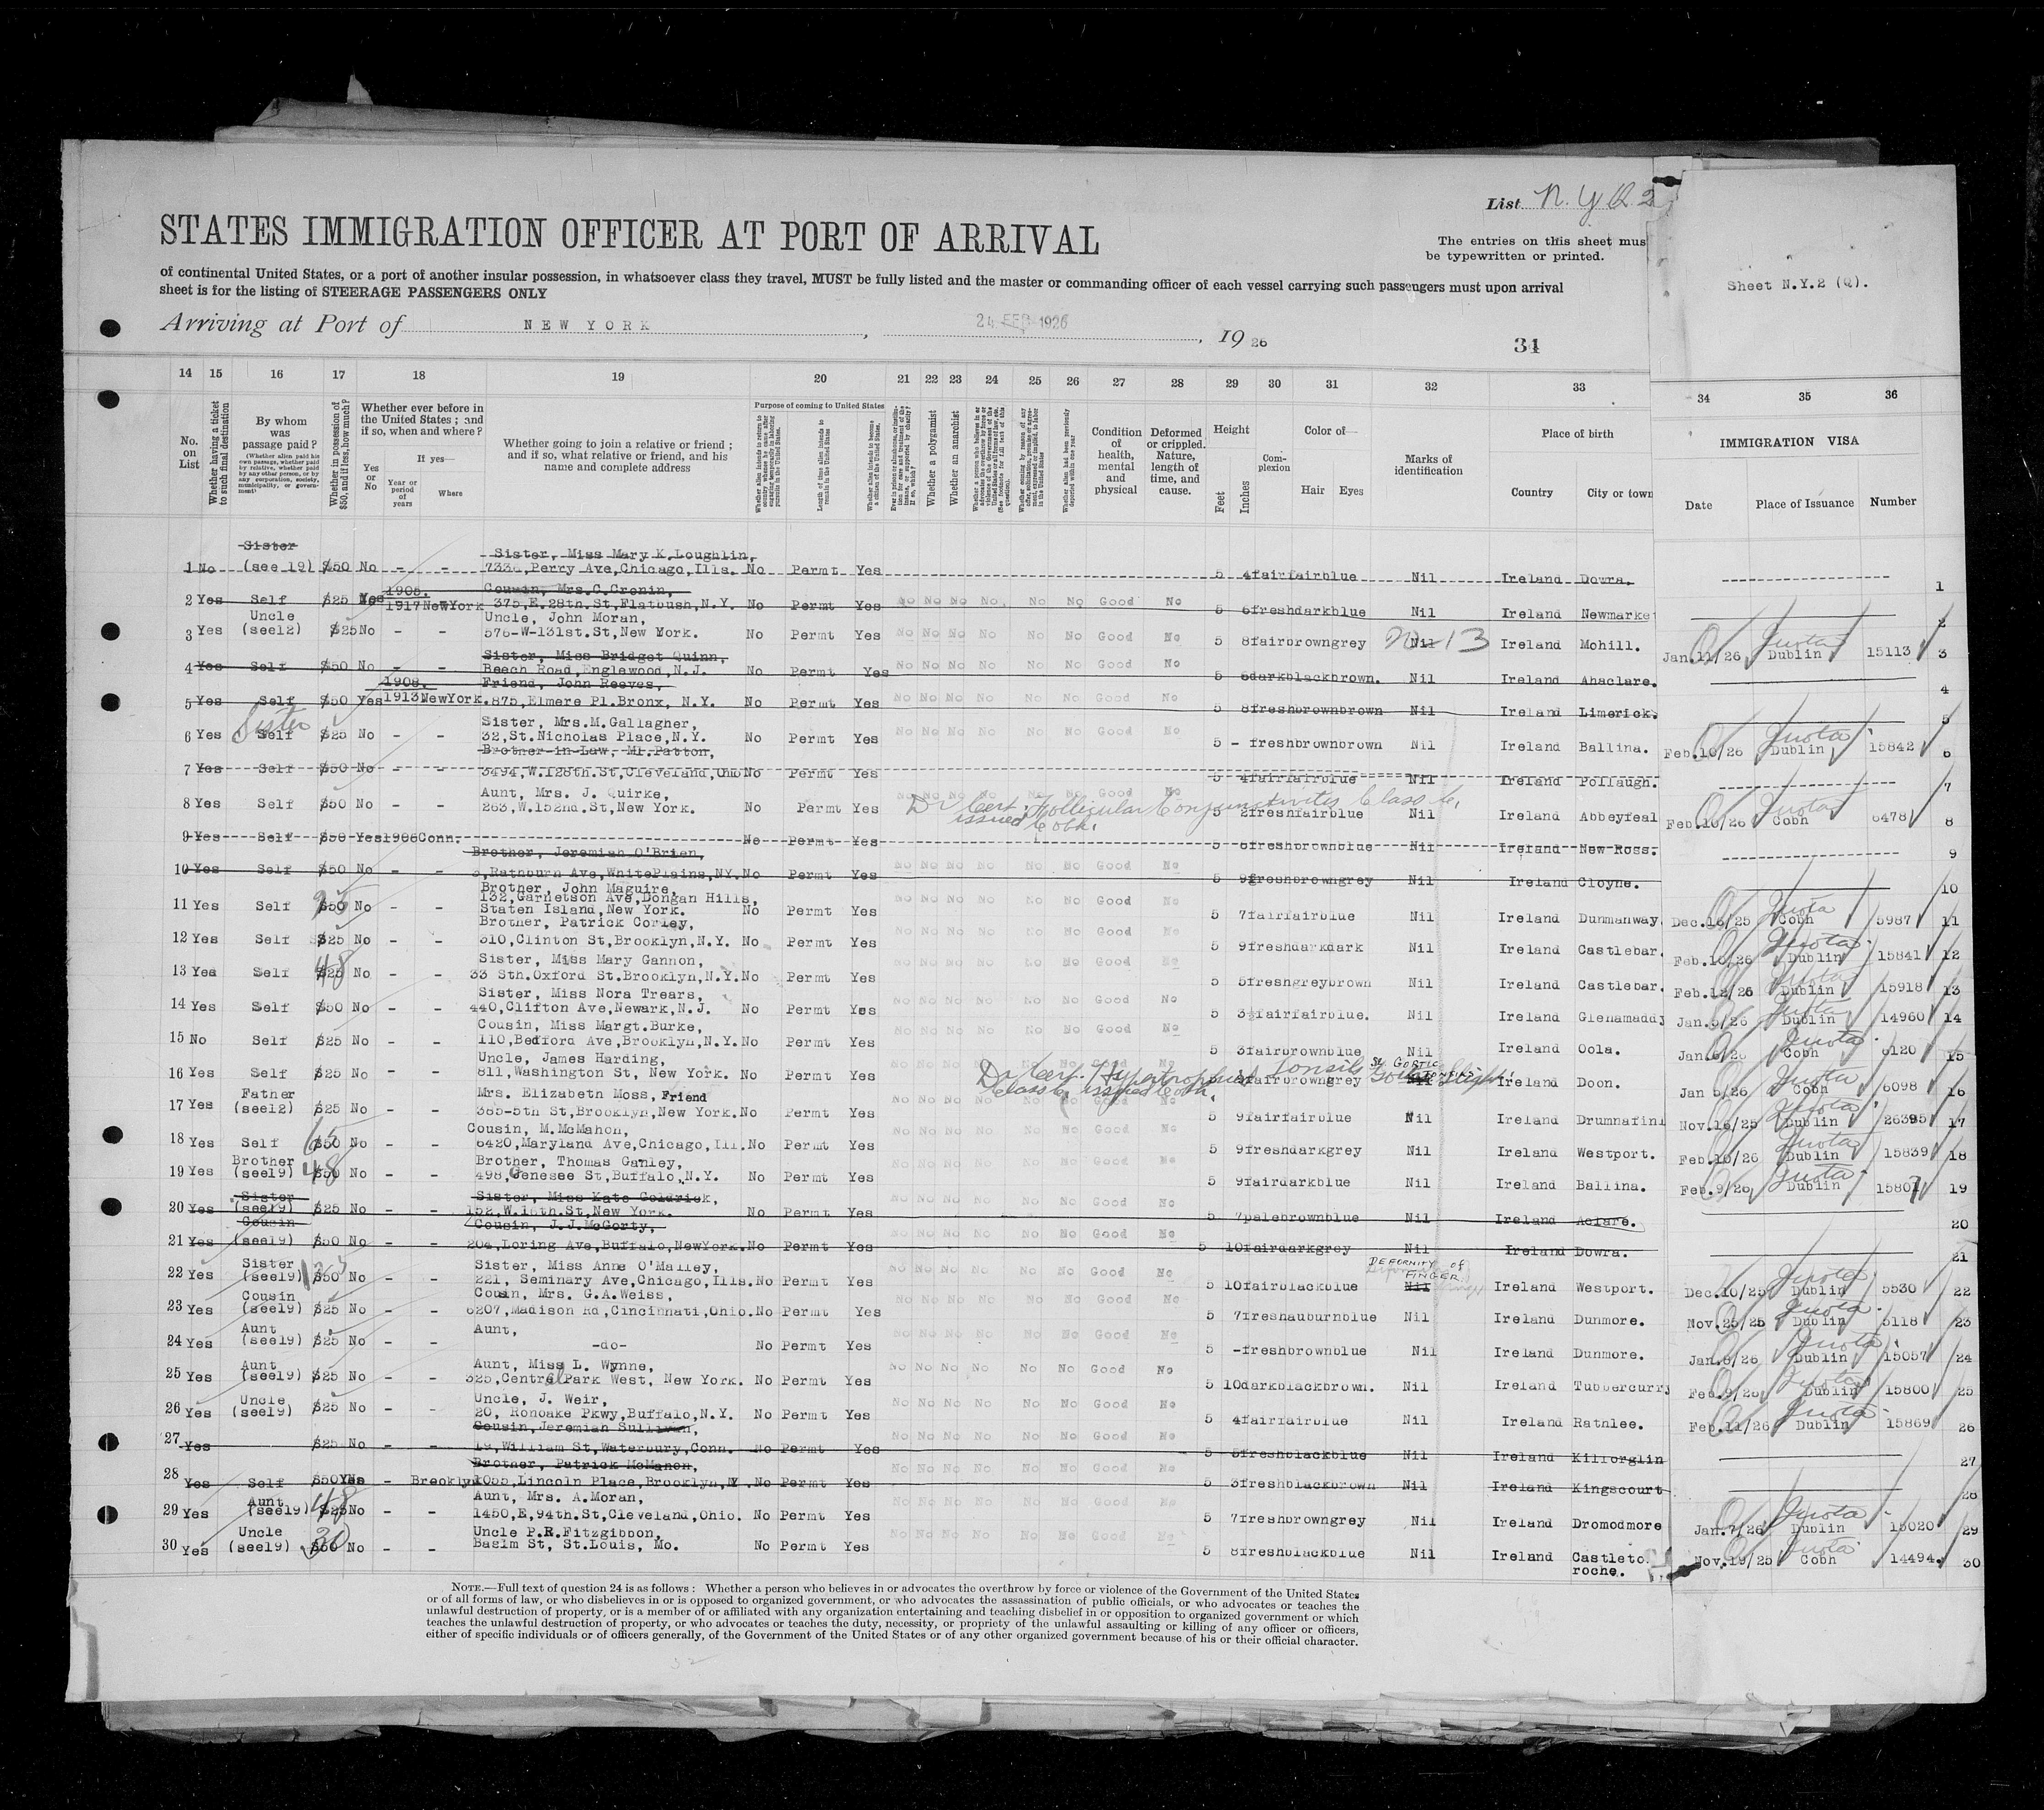 List N.Y.Q.2
STATES IMMIGRATION OFFICER AT PORT OF ARRIVAL
The entries on this sheet mus
be typewritten or printed.
of continental United States, or a port of another insular possession, in whatsoever class they travel, MUST be fully listed and the master or commanding officer of each vessel carrying such passengers must upon arrival
sheet is for the listing of STEERAGE PASSENGERS ONLY
Sheet N.Y.2 (Q).
Arriving at Port of NEW YORK, 24 FEB 1926, 19 26
31
14 15 16 17 18 19 20 21 22 23 24 25 26 27 28 29 30 31 32 33 34 35 36
No. on List
Whether having a ticket to such final destination
By whom was passage paid?
(Whether alien paid his own passage, whether paid by relative, whether paid by any other person, or by any corporation, society, municipality, or government)
Whether in possession of $50, and if less, how much?
Whether ever before in the United States; and if so, when and where?
Yes or No
If yes—
Year or period of years
Where
Whether going to join a relative or friend; and if so, what relative or friend, and his name and complete address
Purpose of coming to United States
Length of time alien intends to remain in the United States
Whether alien intends to become a citizen of the United States.
Whether a polygamist
Whether an anarchist
Condition of health, mental and physical
Deformed or crippled. Nature, length of time, and cause.
Height
Feet
Inches
Complexion
Color of—
Hair Eyes
Marks of identification
Place of birth
Country City or town
IMMIGRATION VISA
Date Place of Issuance Number
Sister Sister, Miss Mary K.Loughlin,
1 No (see 19) $50 No - - Perry Ave,Chicago,Ills. No Permt Yes 5 4 fair fair blue Nil Ireland Dowra. 1
1908. Cousin, Mrs.C.Cronin,
2 Yes Self $25 Yes 1917 NewYork 375,E.28th.St,Flatbush,N.Y. No Permt Yes No No No No No No Good No 5 6 fresh dark blue Nil Ireland Newmarket 2
Uncle Uncle, John Moran,
3 Yes (see12) $25 No - - 576-W-131st.St,New York. No Permt Yes No No No No No No Good No 5 8 fair brown grey Nil Ireland Mohill. Jan.11/26 Quota Dublin 15113 3
Sister, Miss Bridget Quinn,
4 Yes Self $50 No - - Beech Road,Englewood,N.J. No Permt Yes No No No No No No Good No 5 6 dark black brown. Nil Ireland Ahaclare. 4
1908. Friend, John Reeves,
5 Yes Self $50 Yes 1913 NewYork. 875,Elmere Pl.Bronx, N.Y. No Permt Yes No No No No No No Good No 5 8 fresh brown brown Nil Ireland Limerick. 5
Sister Sister, Mrs.M.Gallagher,
6 Yes Self $25 No - - 32,St.Nicholas Place,N.Y. No Permt Yes 5 - fresh brown brown Nil Ireland Ballina. Feb.10/26 Quota Dublin 15842 6
Brother-in-Law, Mr.Patton,
7 Yes Self $50 No - - 3494,W.128th.St,Cleveland,Ohio No Permt Yes 5 4 fair fair blue Nil Ireland Pollaugh. 7
Aunt, Mrs. J. Quirke,
8 Yes Self $50 No - - 263,W.152nd.St,New York. No Permt Yes Dr Cert. Follicular Conjunctivitis Class C, issued Cobh. 5 2 fresh fair blue Nil Ireland Abbeyfeal Feb.10/26 Quota Cobh 6478 8
9 Yes Self $50 Yes 1906 Conn. No Permt Yes 5 6 fresh brown blue Nil Ireland New Ross. 9
Brother, Jeremiah O'Brien,
10 Yes Self $50 No - - Rathburn Ave,WhitePlains,NY. No Permt Yes No No No No No No Good No 5 9½ fresh brown grey Nil Ireland Cloyne. 10
Brother, John Maguire,
132,Garnetson Ave,Dongan Hills,
11 Yes Self $50 No - - Staten Island,New York. No Permt Yes No No No No No No Good No 5 7 fair fair blue Nil Ireland Dunmanway. Dec.16/25 Quota Cobh 5987 11
Brother, Patrick Corley,
12 Yes Self $25 No - - 310,Clinton St,Brooklyn,N.Y. No Permt Yes No No No No No No Good No 5 9 fresh dark dark Nil Ireland Castlebar. Feb.10/26 Quota Dublin 15841 12
Sister, Miss Mary Gannon,
13 Yes Self $25 48 No - - 33 Sth.Oxford St.Brooklyn,N.Y. No Permt Yes No No No No No No Good No 5 5 fresh grey brown Nil Ireland Castlebar. Feb.12/26 Quota Dublin 15918 13
Sister, Miss Nora Trears,
14 Yes Self $50 No - - 440,Clifton Ave,Newark,N.J. No Permt Yes No No No No No No Good No 5 3½ fair fair blue. Nil Ireland Glenamaddy Jan.5/26 Quota Dublin 14960 14
Cousin, Miss Margt.Burke,
15 No Self $25 No - - 110,Bedford Ave,Brooklyn,N.Y. No Permt Yes No No No No No No Good No 5 3 fair brown blue Nil Ireland Oola. Jan.6/26 Quota Cobh 6120 15
Uncle, James Harding,
16 Yes Self $25 No - - 811,Washington St, New York. No Permt Yes Dr Cert. Hypertrophied Tonsils Class C, issued Cobh. fair brown grey Ireland Doon. Jan 5/26 Quota Cobh 6098 16
Father Mrs. Elizabeth Moss, Friend
17 Yes (see12) $25 No - - 385-5th St,Brooklyn,New York. No Permt Yes No No No No No No Good No 5 9 fair fair blue Nil Ireland Drumnafinl Nov.16/25 Quota Dublin 26395 17
Cousin, M.McMahon,
18 Yes Self $50 No - - 6420,Maryland Ave,Chicago,Ill. No Permt Yes No No No No No No Good No 5 9 fresh dark grey Nil Ireland Westport. Feb.10/26 Quota Dublin 15839 18
Brother Brother, Thomas Ganley,
19 Yes (see19) $50 48 No - - 498,Genesee St,Buffalo,N.Y. No Permt Yes No No No No No No Good No 5 9 fair dark blue Nil Ireland Ballina. Feb.9/26 Quota Dublin 15807 19
Sister Sister, Miss Kate Goldrick,
20 Yes (see19) $25 No - - 152,W.16th.St,New York. No Permt Yes No No No No No No Good No 5 7 pale brown blue Nil Ireland Aclare. 20
Cousin Cousin, J.J.McGorty,
21 Yes (see19) $50 No - - 204,Loring Ave,Buffalo,NewYork. No Permt Yes No No No No No No Good No 5 10 fair dark grey Nil Ireland Dowra. 21
Sister Sister, Miss Anne O'Malley,
22 Yes (see19) $50 No - - 221, Seminary Ave,Chicago,Ills. No Permt Yes No No No No No No Good No 5 10 fair black blue Nil DEFORMITY of FINGER. Ireland Westport. Dec.10/25 Quota Dublin 5530 22
Cousin Cousin, Mrs. G.A.Weiss,
23 Yes (see19) $25 No - - 6207,Madison Rd,Cincinnati,Ohio. No Permt Yes No No No No No No Good No 5 7 fresh auburn blue Nil Ireland Dunmore. Nov.25/25 Quota Dublin 5118 23
Aunt Aunt,
24 Yes (see19) $25 No - - -do- No Permt Yes No No No No No No Good No 5 - fresh brown blue Nil Ireland Dunmore. Jan.8/26 Quota Dublin 15057 24
Aunt Aunt, Miss L. Wynne,
25 Yes (see19) $25 No - - 325,Central Park West, New York. No Permt Yes No No No No No No Good No 5 10 dark black brown. Nil Ireland Tubbercurry Feb.9/26 Quota Dublin 15800 25
Uncle Uncle, J. Weir,
26 Yes (see19) $25 No - - 20, Ronoake Pkwy,Buffalo,N.Y. No Permt Yes No No No No No No Good No 5 4 fair fair blue Nil Ireland Rathlee. Feb.11/26 Quota Dublin 15869 26
Cousin,Jeremiah Sullivan,
27 Yes $25 No - - 19,William St,Waterbury,Conn. No Permt Yes No No No No No No Good No 5 5 fresh black blue Nil Ireland Killorglin 27
Brother, Patrick McMahon,
28 Yes Self $50 Yes - Brooklyn 1055,Lincoln Place,Brooklyn,NY. No Permt Yes No No No No No No Good No 5 3 fresh black brown Nil Ireland Kingscourt 28
Aunt Aunt, Mrs. A.Moran,
29 Yes (see19) $25 48 No - - 1450,E,94th.St,Cleveland,Ohio. No Permt Yes No No No No No No Good No 5 7 fresh brown grey Nil Ireland Dromodmore Jan.7/26 Quota Dublin 15020 29
Uncle Uncle P.R.Fitzgibbon,
30 Yes (see19) 30 No - - Baslm St, St.Louis, Mo. No Permt Yes No No No No No No Good No 5 8 fresh black blue Nil Ireland Castleto. roche. Nov.19/25 Quota Cobh 14494. 30
NOTE.—Full text of question 24 is as follows: Whether a person who believes in or advocates the overthrow by force or violence of the Government of the United States
or of all forms of law, or who disbelieves in or is opposed to organized government, or who advocates the assassination of public officials, or who advocates or teaches the
unlawful destruction of property, or is a member of or affiliated with any organization entertaining and teaching disbelief in or opposition to organized government or which
teaches the unlawful destruction of property, or who advocates or teaches the duty, necessity, or propriety of the unlawful assaulting or killing of any officer or officers,
either of specific individuals or of officers generally, of the Government of the United States or of any other organized government because of his or their official character.